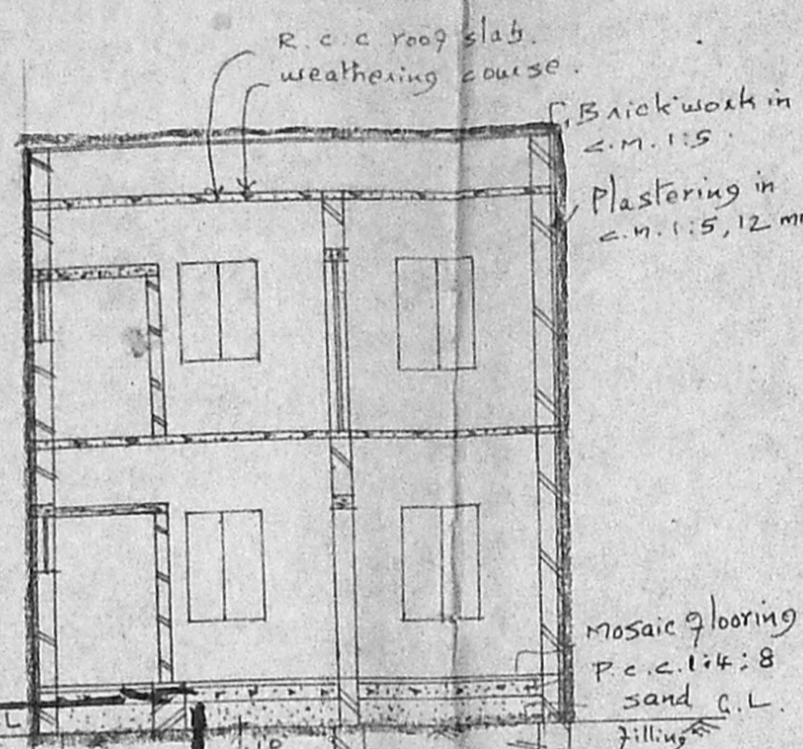 R.c.c roof slab.
weathering course.
Brick work in
c.m. 1:5.
Plastering in
c.m. 1:5, 12 m
Mosaic flooring
P.c.c. 1:4:8
sand G.L.
filling
L